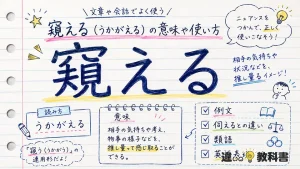 文章や会話でよく使う
窺える(うかがえる)の意味や使い方
ニュアンスを
つかんで、正しく
使いこなそう!
窺える
相手の気持ちや
状況などを、
推し量るイメージ!
読み方
うかがえる
「窺う(うかがう)」の
意味
相手の気持ちや考え、
物事の様子などを、
推し量って感じ取ることが
できる。
例文
伺えるとの違い
類語
英
教科書